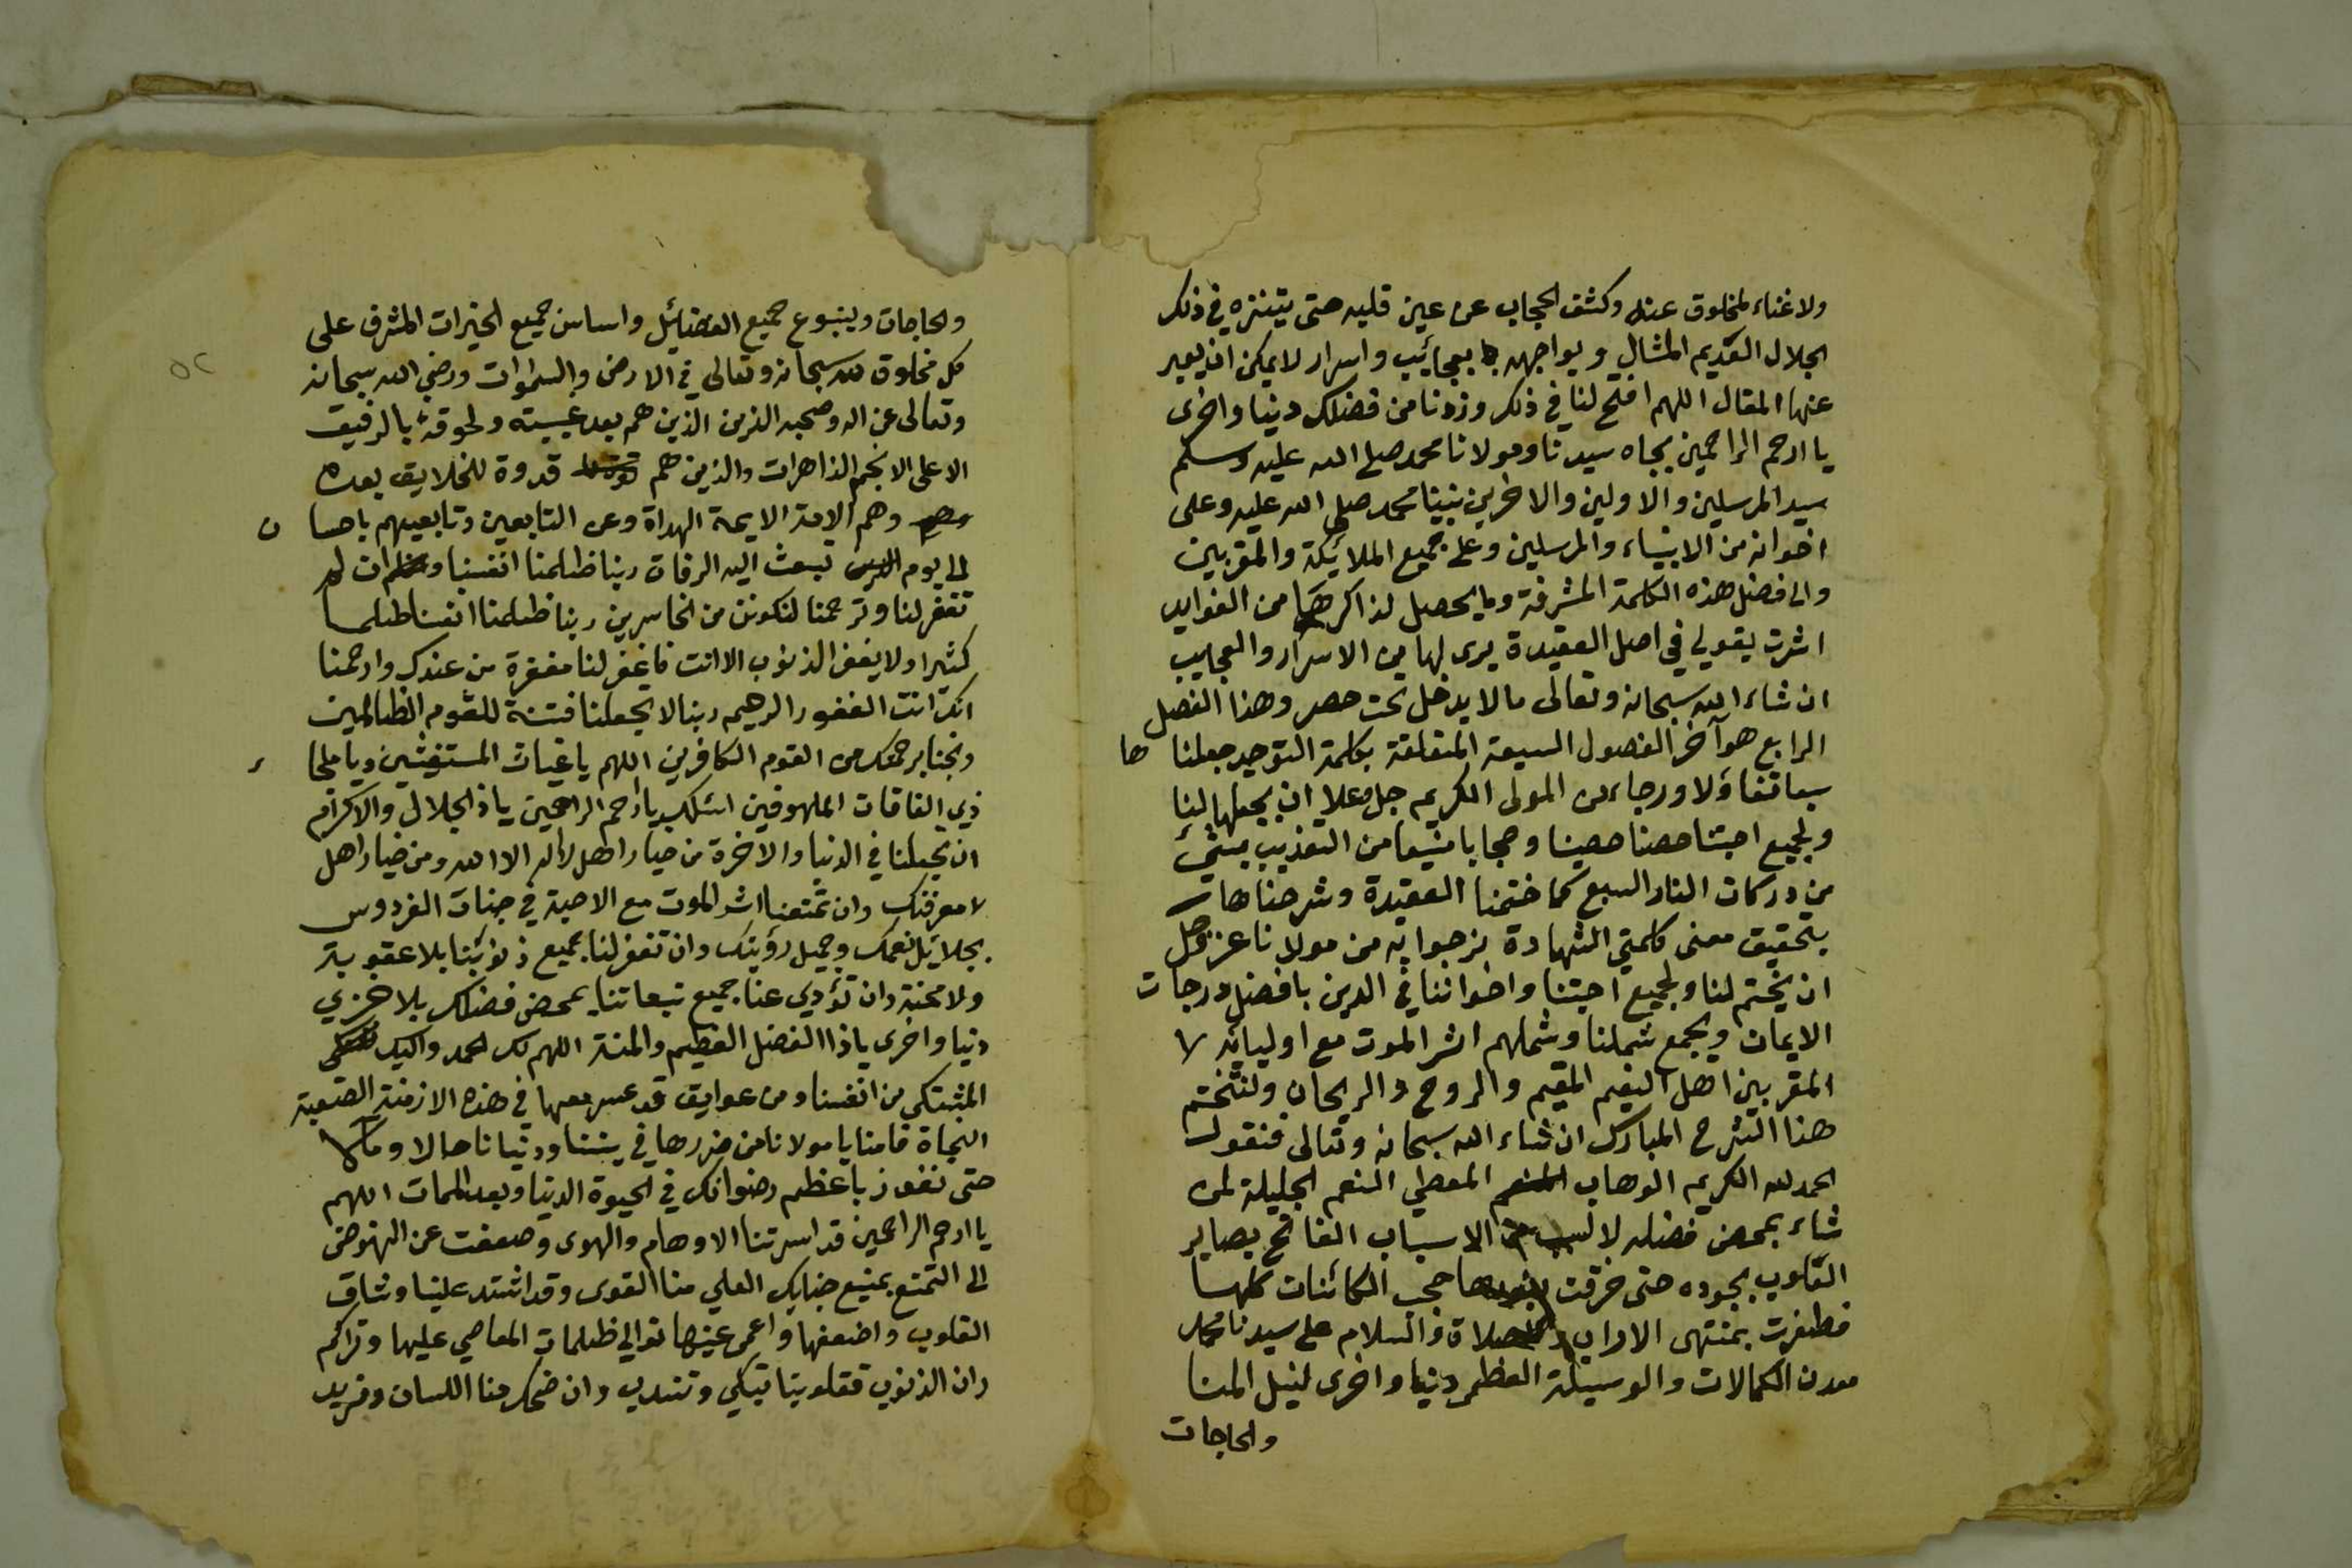 ولا غناء لمخلوق عنه وكشف الحجاب عن عين قلبه حتى يتنزه في ذلك
الجلال العديم المثال ويواجهه بعجائب واسرار لا يمكن ان يعبر
عنها المقال اللهم افتح لنا في ذلك وزدنا من فضلك دنيا واخرى
يا ارحم الراحمين بجاه سيدنا ومولانا محمد صلى الله عليه وسلم
سيد المرسلين والاولين والاخرين نبينا محمد صلى الله عليه وعلى
اخوانه من الانبياء والمرسلين وعلى جميع الملائكة والمقربين
والى فضل هذه الكلمة المشرفة وما يحصل لذاكرها من الفوايد
اشرت بقولي في اصل العقيدة يرى لها من الاسرار والعجايب
ان شاء الله سبحانه وتعالى ما لا يدخل تحت حصر وهذا الفصل
الرابع هو آخر الفصول السبعة المتعلقة بكلمة التوحيد جعلنا ها
سبعا تفاؤلا ورجاء من المولى الكريم جل وعلا ان يجعلها لنا
ولجميع احبتنا حصنا حصينا وحجابا منيعا من التعذيب بشئ
من دركات النار السبع كما ختمنا العقيدة وشرحناها
بتحقيق معنى كلمتي الشهادة نرجوا به من مولانا عز وجل
ان يختم لنا ولجميع احبتنا واخواننا في الدين بافضل درجات
الايمان ويجمع شملنا وشملهم اثر الموت مع اوليائه لا
المقربين اهل النعيم المقيم والروح والريحان ولنختم
هذا الشرح المبارك ان شاء الله سبحانه وتعالى فنقول
الحمد لله الكريم الوهاب المعطي النعم الجليلة لمن
شاء بمحض فضله لا لسبب من الاسباب الفاتح بصاير
القلوب بجوده حتى خرقت حجب الكائنات كلها
فظفرت بمنتهى الاراب والصلاة والسلام على سيدنا محمد
معدن الكمالات والوسيلة العظمى دنيا واخرى لنيل المنا
والحاجات
والحاجات وينبوع جميع الفضائل واساس جميع الخيرات المشرف على
كل مخلوق لله سبحانه وتعالى في الارض والسموات ورضي الله سبحانه
وتعالى عن اله وصحبه الذين الذين هم بعد غيبته ولحوقه بالرفيق
الاعلى الانجم الزاهرات والذين هم قدوة للخلايق بعده
وهم الامة الايمة الهداة وعن التابعين وتابعيهم باحسا ن
الى يوم تبعث اليه الرفات ربنا ظلمنا انفسنا وان لم
تغفر لنا وترحمنا لنكونن من الخاسرين ربنا ظلمنا انفسنا ظلما
كثيرا ولا يغفر الذنوب الا انت فاغفر لنا مغفرة من عندك وارحمنا
انك انت الغفور الرحيم ربنا لا تجعلنا فتنة للقوم الظالمين
ونجنا برحمتك من القوم الكافرين اللهم يا غياث المستغيثين ويا ملجا ء
ذي الفاقات الملهوفين اسئلك يا ارحم الراحمين يا ذا الجلال والاكرام
ان تجعلنا في الدنيا والاخرة من خيار اهل لا اله الا الله ومن خيار اهل
لا معرفتك وان تمتعنا اثر الموت مع الاحبة في جنات الفردوس
بجلائل نعمك وجميل رؤيتك وان تغفر لنا جميع ذنوبنا بلا عقوبة
ولا محنة وان تؤدي عنا جميع تبعاتنا بمحض فضلك بلا خزي
دنيا واخرى يا ذا الفضل العظيم والمنة اللهم لك الحمد واليك
المشتكى من انفسنا ومن عوايق قد عسر معها في هذه الازمنة الصعبة
النجاة فامنا يا مولانا من ضررها في ديننا ودنيانا حالا ومآلا
حتى نفوز باعظم رضوانك في الحيوة الدنيا وبعد الممات اللهم
يا ارحم الراحمين قد اسرتنا الاوهام والهوى وضعفت عن النهوض
الى التمتع بمنيع جنابك العلي منا القوى وقد اشتد علينا وثاق
القلوب واضعفها واعمى عينها توالي ظلمات المعاصي عليها وتراكم
ران الذنوب فقلوبنا تبكي وتندب وان ضحك منا اللسان ونريد